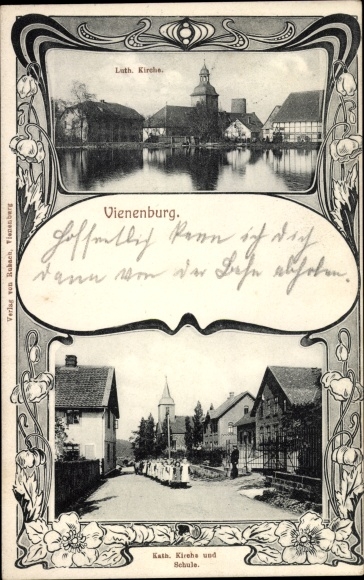 Luth. Kirche.
Vienenburg.
Hoffentlich kann ich dich
dann von der Bahn abholen.
Verlag von Rubach, Vienenburg
Kath. Kirche und
Schule.